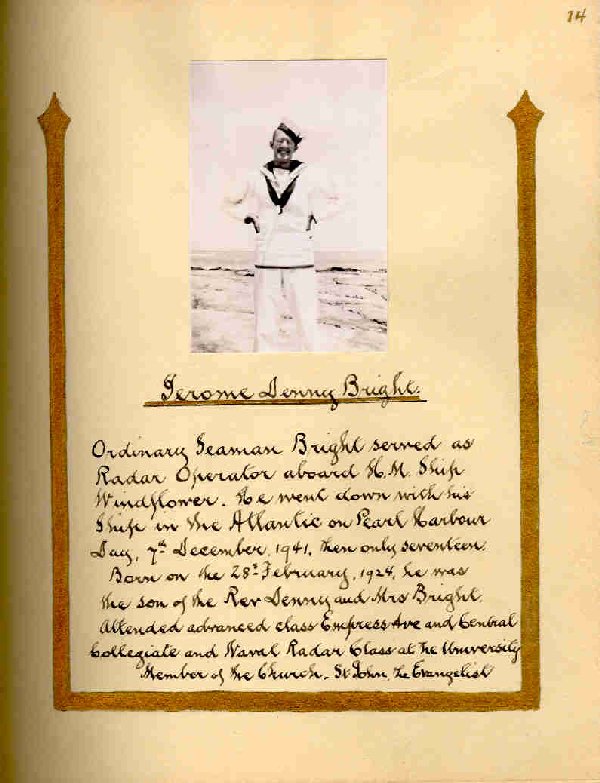 14
Jerome Denny Bright.
Ordinary Seaman Bright served as
Radar Operator aboard H.M. Ship
Windflower. He went down with his
Ship in the Atlantic on Pearl Harbour
Day, 7th December, 1941, then only seventeen.
Born on the 28th February, 1924, he was
the son of the Rev Denny and Mrs Bright.
Attended advanced class Empress Ave and Central
Collegiate and Naval Radar Class at the University
Member of the Church. St John, the Evangelist